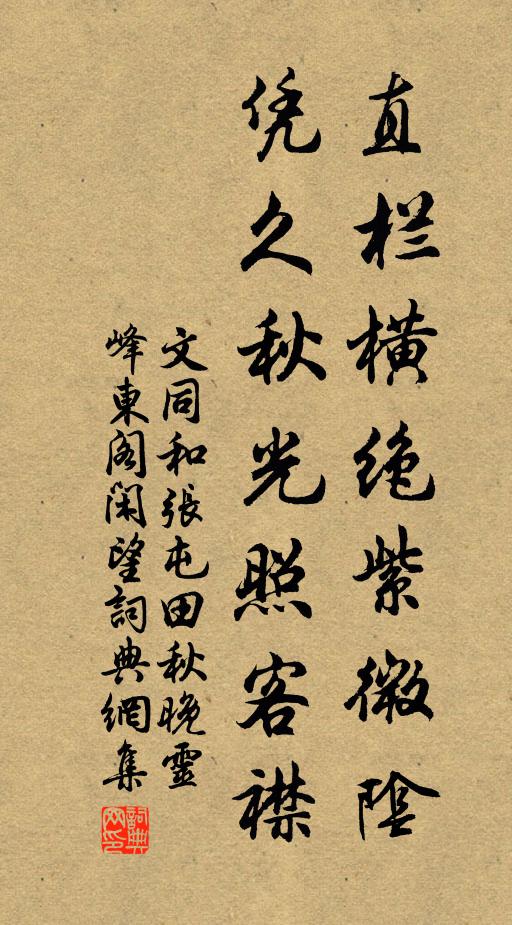 直栏横绝紫微阴
凭久秋光照客襟
文同和張屯田秋晚靈
峰東阁闲望詞典網集
詞典网印